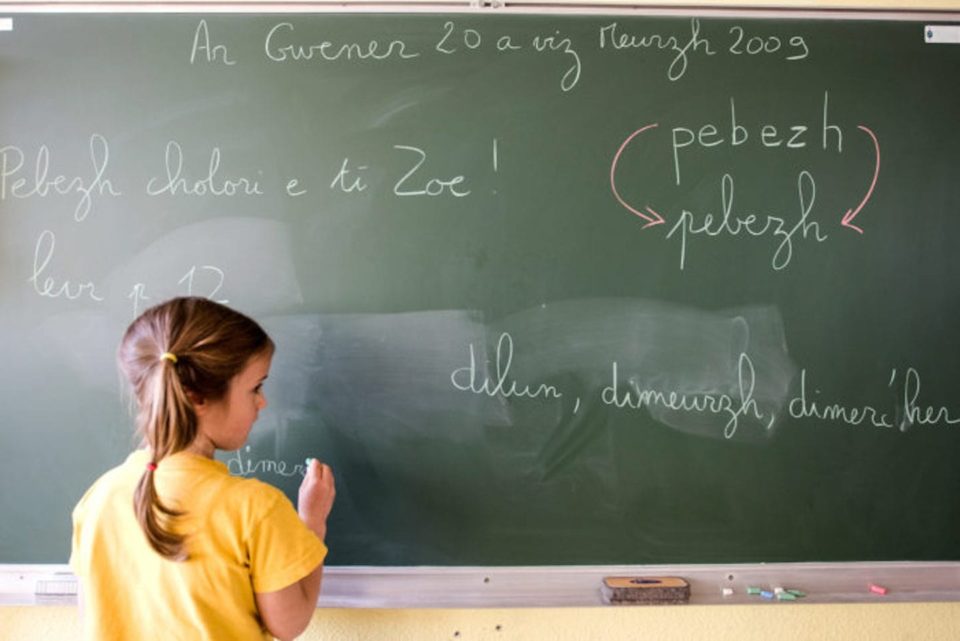 An Gwener 20 a viz Meurzh 2009
pebezh
Pebezh cholori e ti Zoe !
pebezh
levr p 12
dilun, dimeurzh, dimerc'her
dimer